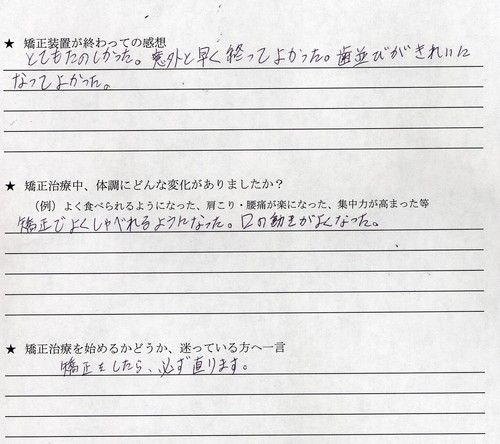 ★ 矯正装置が終わっての感想
とてもたのしかった。意外と早く終ってよかった。歯並びがきれいに
なってよかった。
★ 矯正治療中、体調にどんな変化がありましたか？
（例）よく食べられるようになった、肩こり・腰痛が楽になった、集中力が高まった等
矯正でよくしゃべれるようになった。口の動きがよくなった。
★ 矯正治療を始めるかどうか、迷っている方へ一言
矯正をしたら、必ず直ります。